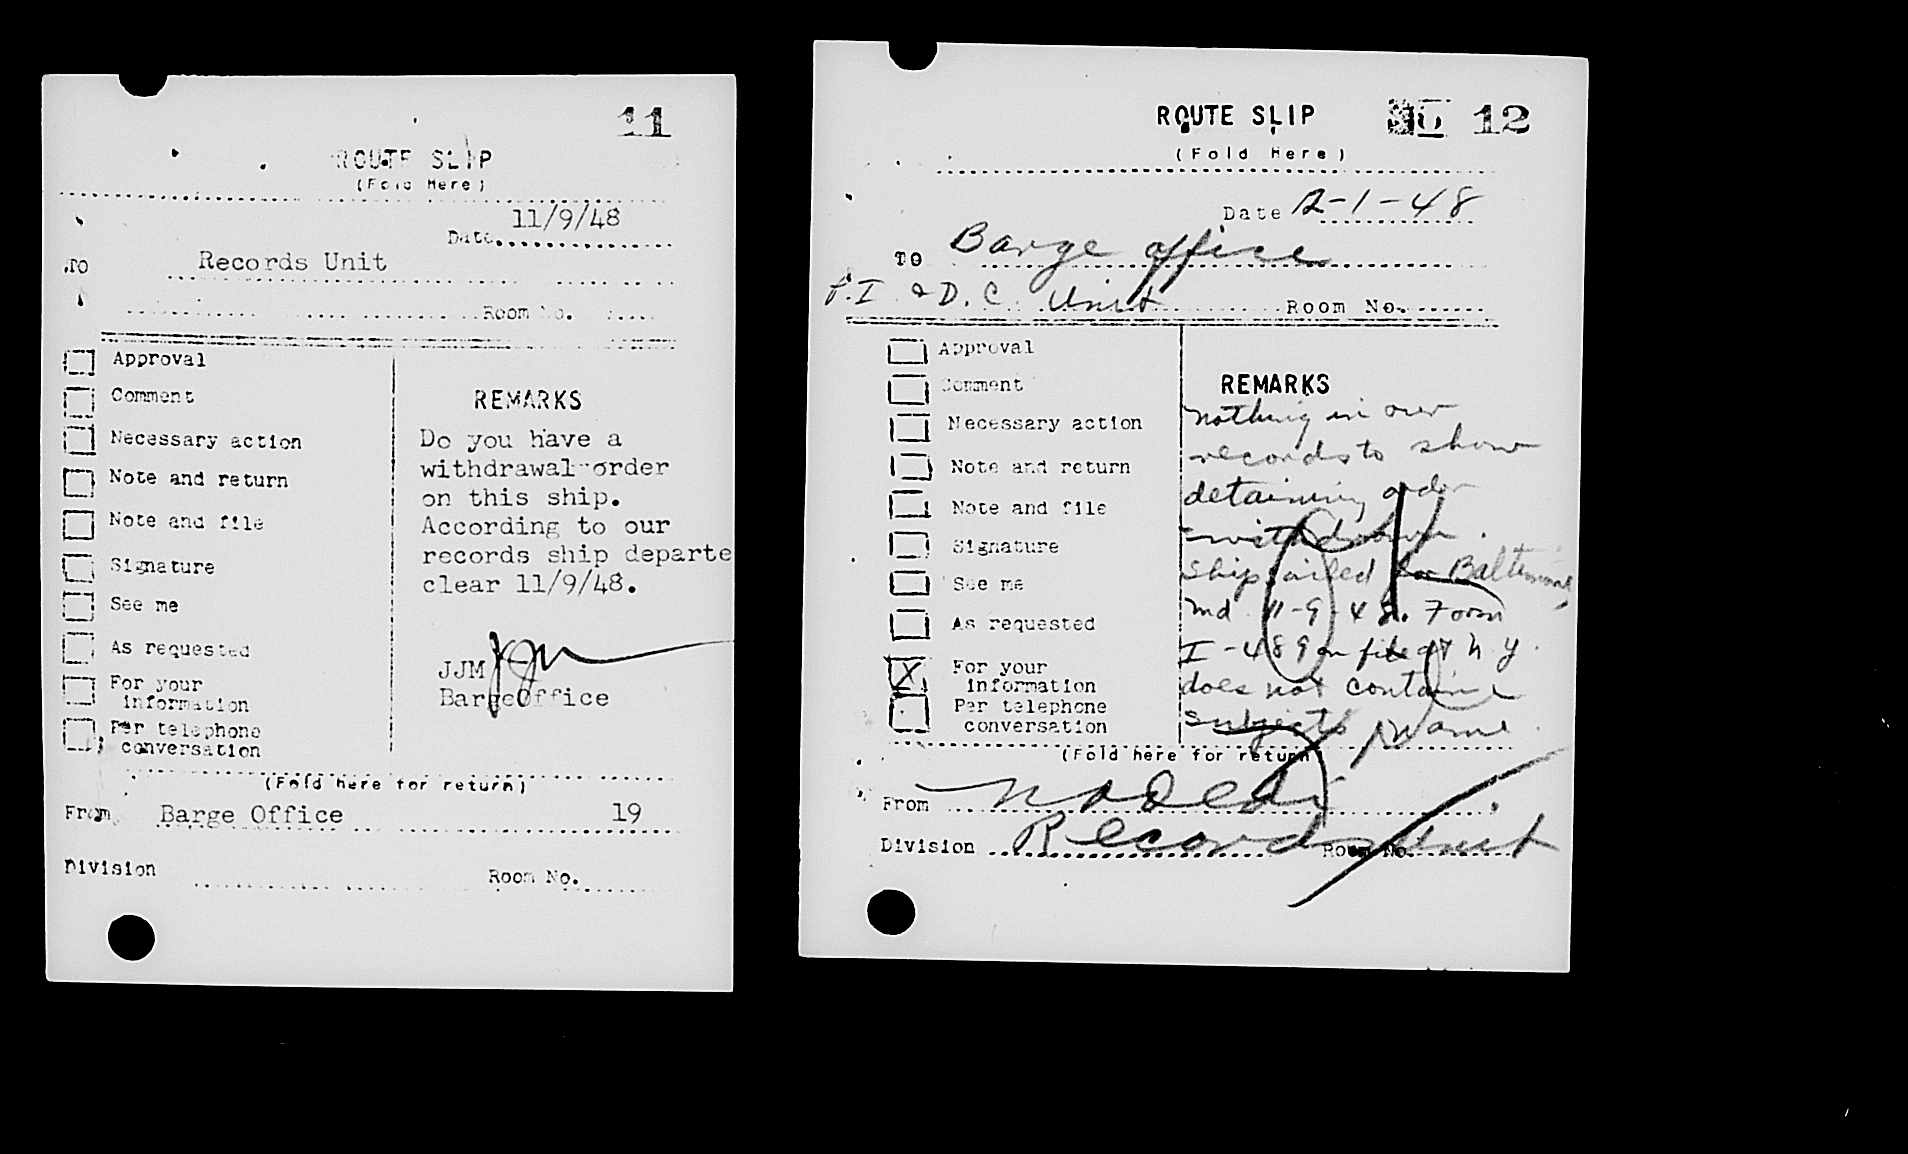 11
ROUTE SLIP
(Fold Here)
Date 11/9/48
TO Records Unit
Room No.
Approval
Comment
Necessary action
Note and return
Note and file
Signature
See me
As requested
For your
information
Per telephone
conversation
REMARKS
Do you have a
withdrawal order
on this ship.
According to our
records ship departe
clear 11/9/48.
JJM
BargeOffice
(Fold here for return)
From Barge Office 19
Division Room No.
12
ROUTE SLIP
(Fold Here)
Date 12-1-48
TO Barge office
P.I & D.C. Unit Room No.
Approval
Comment
Necessary action
Note and return
Note and file
Signature
See me
As requested
X For your
information
Per telephone
conversation
REMARKS
nothing in our
records to show
detaining order
withdrawn.
Ship sailed for Baltimore
Md 11-9-48. Form
I-489 on file at N.Y.
does not contain
subject's name.
(Fold here for return)
From
Division Records Unit Room No.